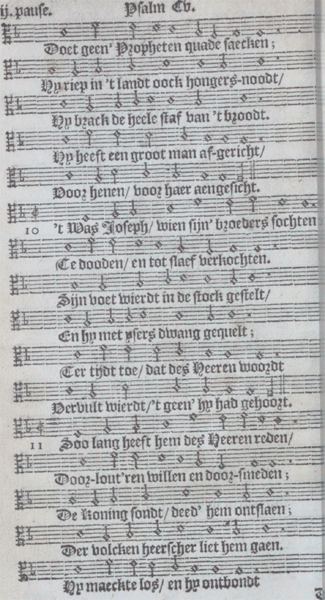 ij. pause. Psalm Cv.
Doet geen' Propheten quade saecken;
Hy riep in 't landt oock hongers-noodt/
Hy brack de heele staf van 't broodt.
Hy heeft een groot man af-gericht/
Voor henen/ voor haer aengesicht.
10 't Was Joseph/ wien sijn' broeders sochten
Te dooden/ en tot slaef verkochten.
Sijn voet wierdt in de stock gestelt/
En hy met ysers dwang gequelt;
Ter tijdt toe/ dat des Heeren woordt
Vervult wierdt/ 't geen' hy had gehoort.
11 Soo lang heeft hem des Heeren reden/
Door-lout'ren willen en door-smeden;
De Koning sondt/ deed' hem ontslaen;
Der volcken heerscher liet hem gaen.
Hy maeckte los/ en hy ontbondt